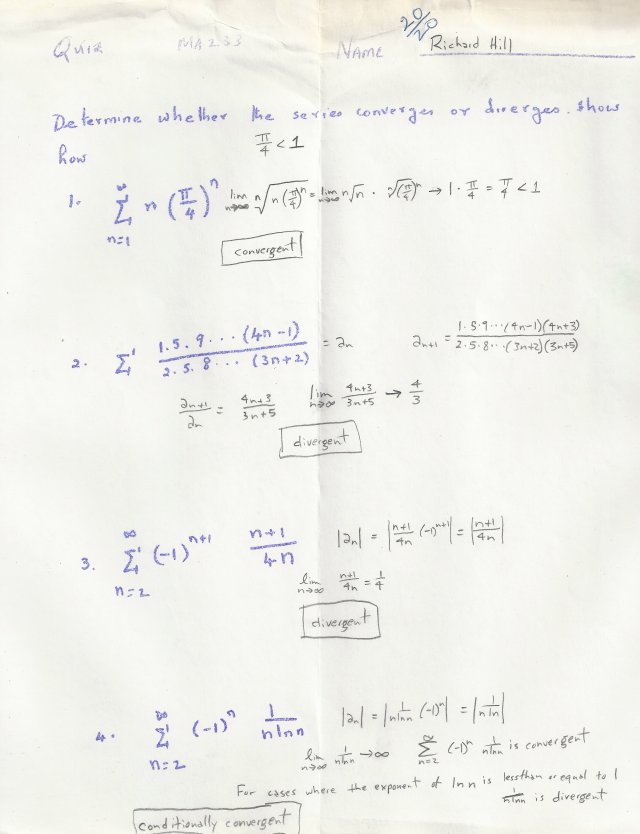 20/20
Quiz MA233 NAME Richard Hill
Determine whether the series converges or diverges. Show
how π/4 < 1
1. ∑_{n=1}^{∞} n (π/4)^n lim_{n→∞} ⁿ√(n(π/4)^n) = lim_{n→∞} ⁿ√n · ⁿ√((π/4)^n) → 1 · π/4 = π/4 < 1
convergent
2. ∑ 1.5.9...(4n-1) / 2.5.8...(3n+2) = a_n a_{n+1} = 1·5·9···(4n-1)(4n+3) / 2·5·8···(3n+2)(3n+5)
a_{n+1}/a_n = (4n+3)/(3n+5) lim_{n→∞} (4n+3)/(3n+5) → 4/3
divergent
3. ∑_{n=2}^{∞} (-1)^{n+1} (n+1)/(4n) |a_n| = |(n+1)/(4n) (-1)^{n+1}| = |(n+1)/(4n)|
lim_{n→∞} (n+1)/(4n) = 1/4
divergent
4. ∑_{n=2}^{∞} (-1)^n 1/(n ln n) |a_n| = |1/(n ln n) (-1)^n| = |1/(n ln)|
lim_{n→∞} 1/(n ln n) → ∞ ∑_{n=2}^{∞} (-1)^n 1/(n ln n) is convergent
For cases where the exponent of ln n is less than or equal to 1
1/(n ln n) is divergent
conditionally convergent